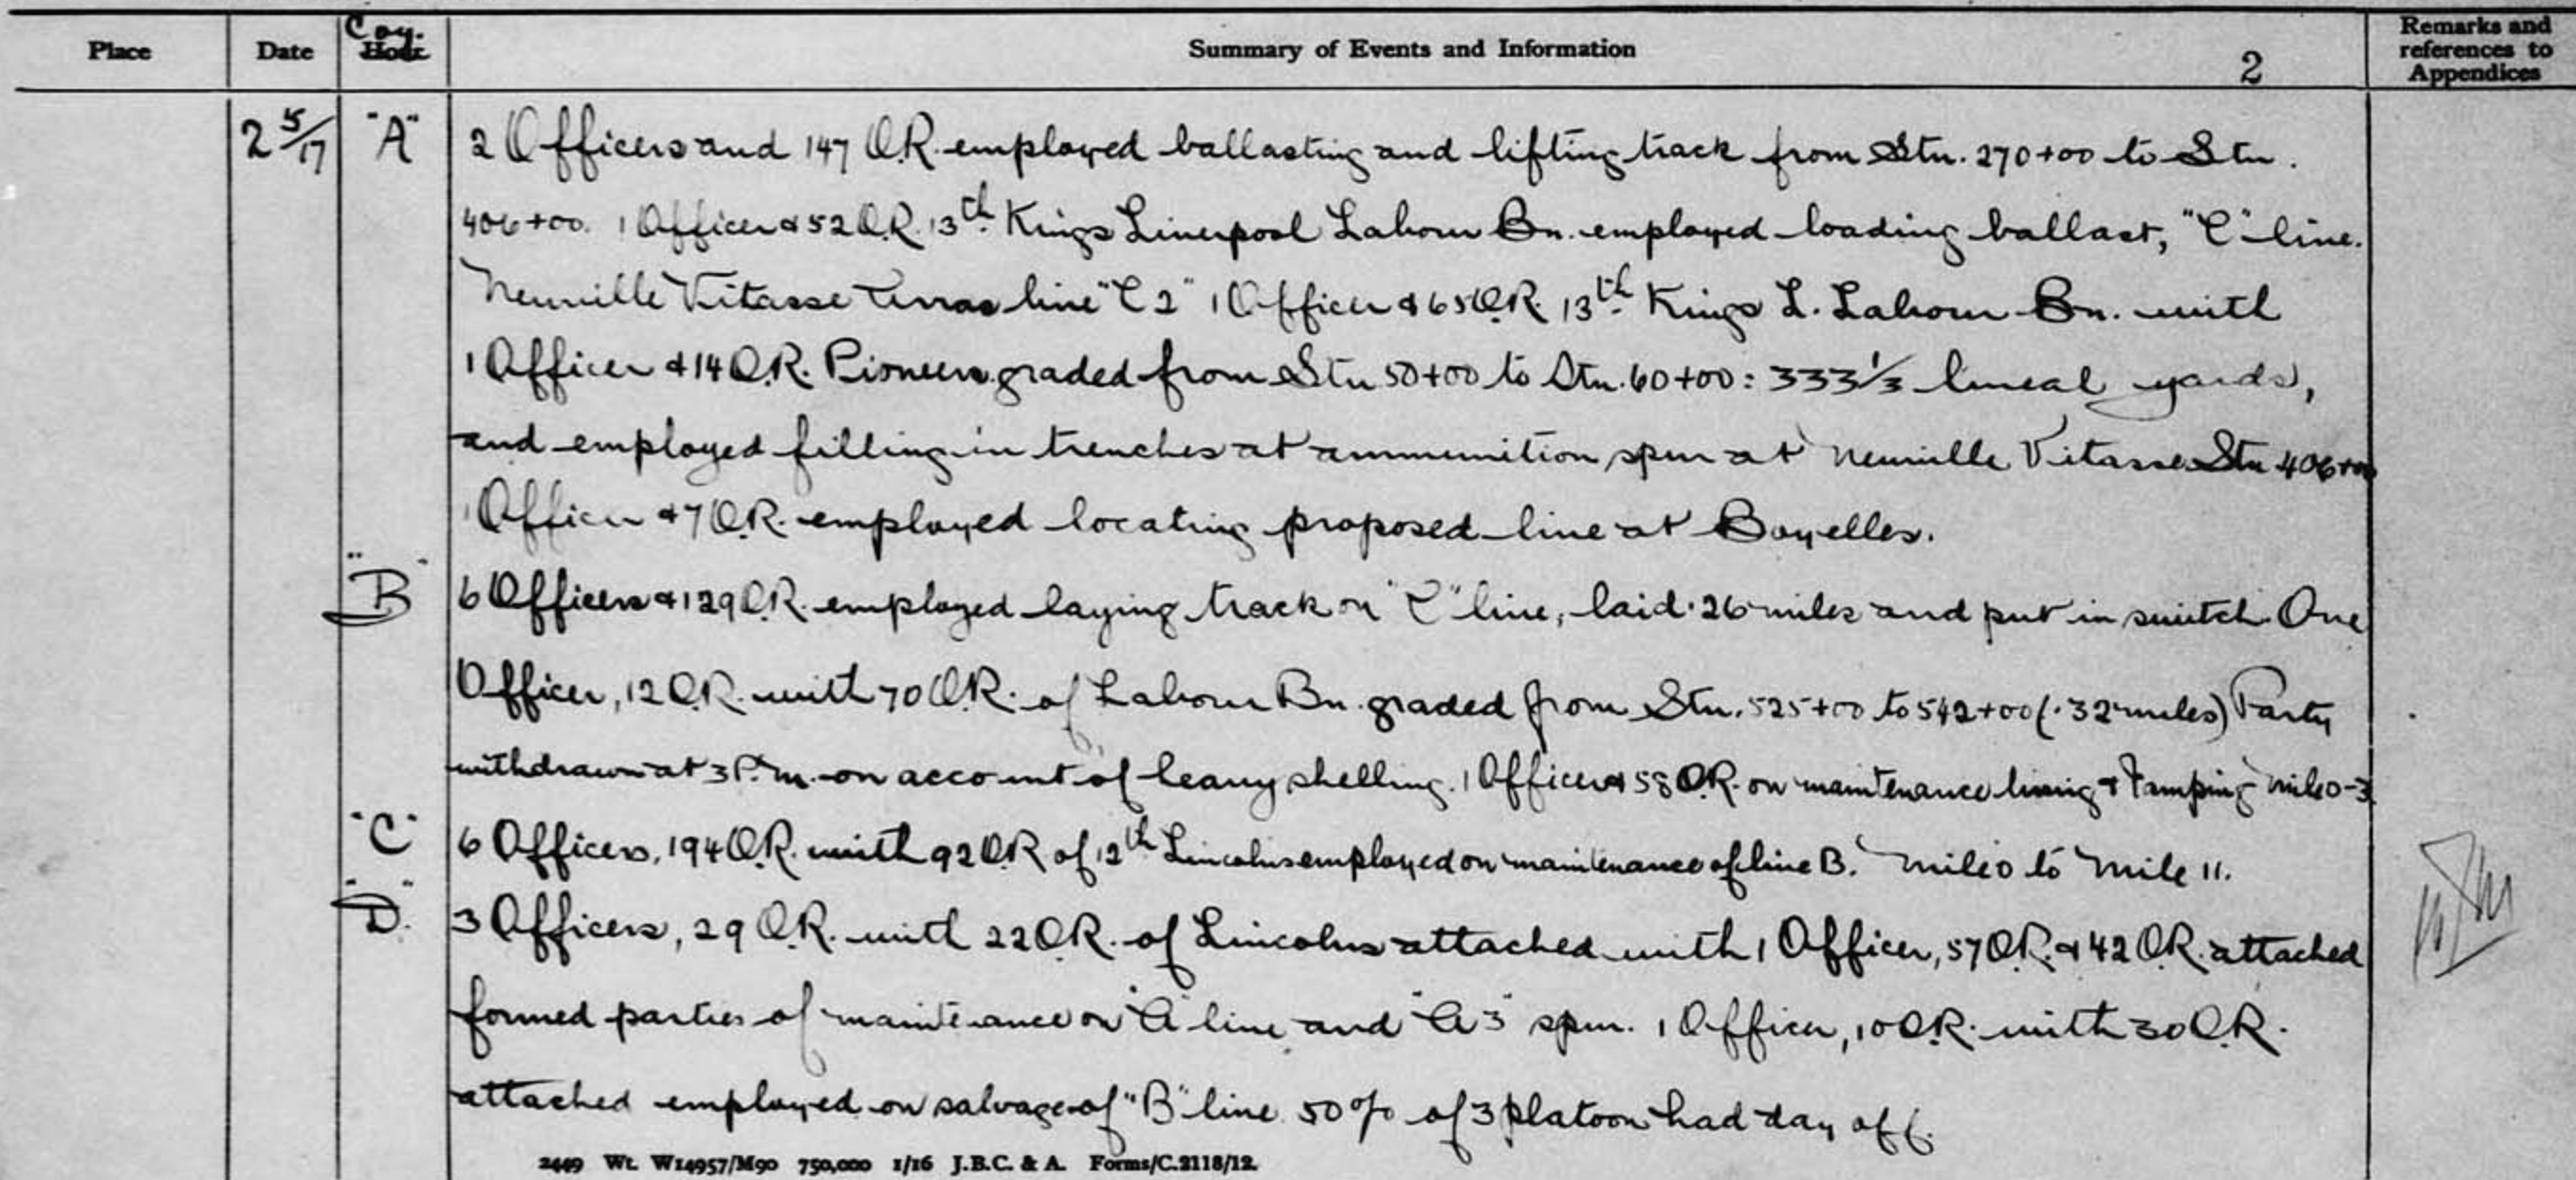 Place Date Coy. Hour Summary of Events and Information 2 Remarks and references to Appendices
2 5/17 "A" 2 Officers and 147 O.R. employed ballasting and lifting track from Stn. 270+00 to Stn.
406+00. 1 Officer & 52 O.R. 13th Kings Liverpool Labour Bn. employed loading ballast, "C" line.
Neuville Vitasse line "C 2" 1 Officer & 65 O.R. 13th Kings L. Labour Bn. with
1 Officer & 14 O.R. Pioneers graded from Stn 50+00 to Stn. 60+00: 333 1/3 lineal yards,
and employed filling in trenches at ammunition spur at Neuville Vitasse Stn 406+00
1 Officer & 7 O.R. employed locating proposed line at Boyelles.
"B" 6 Officers & 129 O.R. employed laying track on "C" line, laid .26 miles and put in switch. One
Officer, 12 O.R. with 70 O.R. of Labour Bn. graded from Stn. 525+00 to 542+00 (.32 miles) Party
withdrawn at 3 P.m. on account of heavy shelling. 1 Officer & 58 O.R. on maintenance lining & tamping mile 0-3
"C" 6 Officers, 194 O.R. with 92 O.R of 12th Lincolns employed on maintenance of line B. Mile 0 to Mile 11.
"D" 3 Officers, 29 O.R. with 22 O.R. of Lincolns attached with 1 Officer, 57 O.R. & 42 O.R. attached
formed parties of maintenance on "A" line and "A 3" spur. 1 Officer, 10 O.R. with 30 O.R.
attached employed on salvage of "B" line. 50% of 3 platoon had day off.
2449 Wt. W14957/M90 750,000 1/16 J.B.C. & A. Forms/C.2118/12.